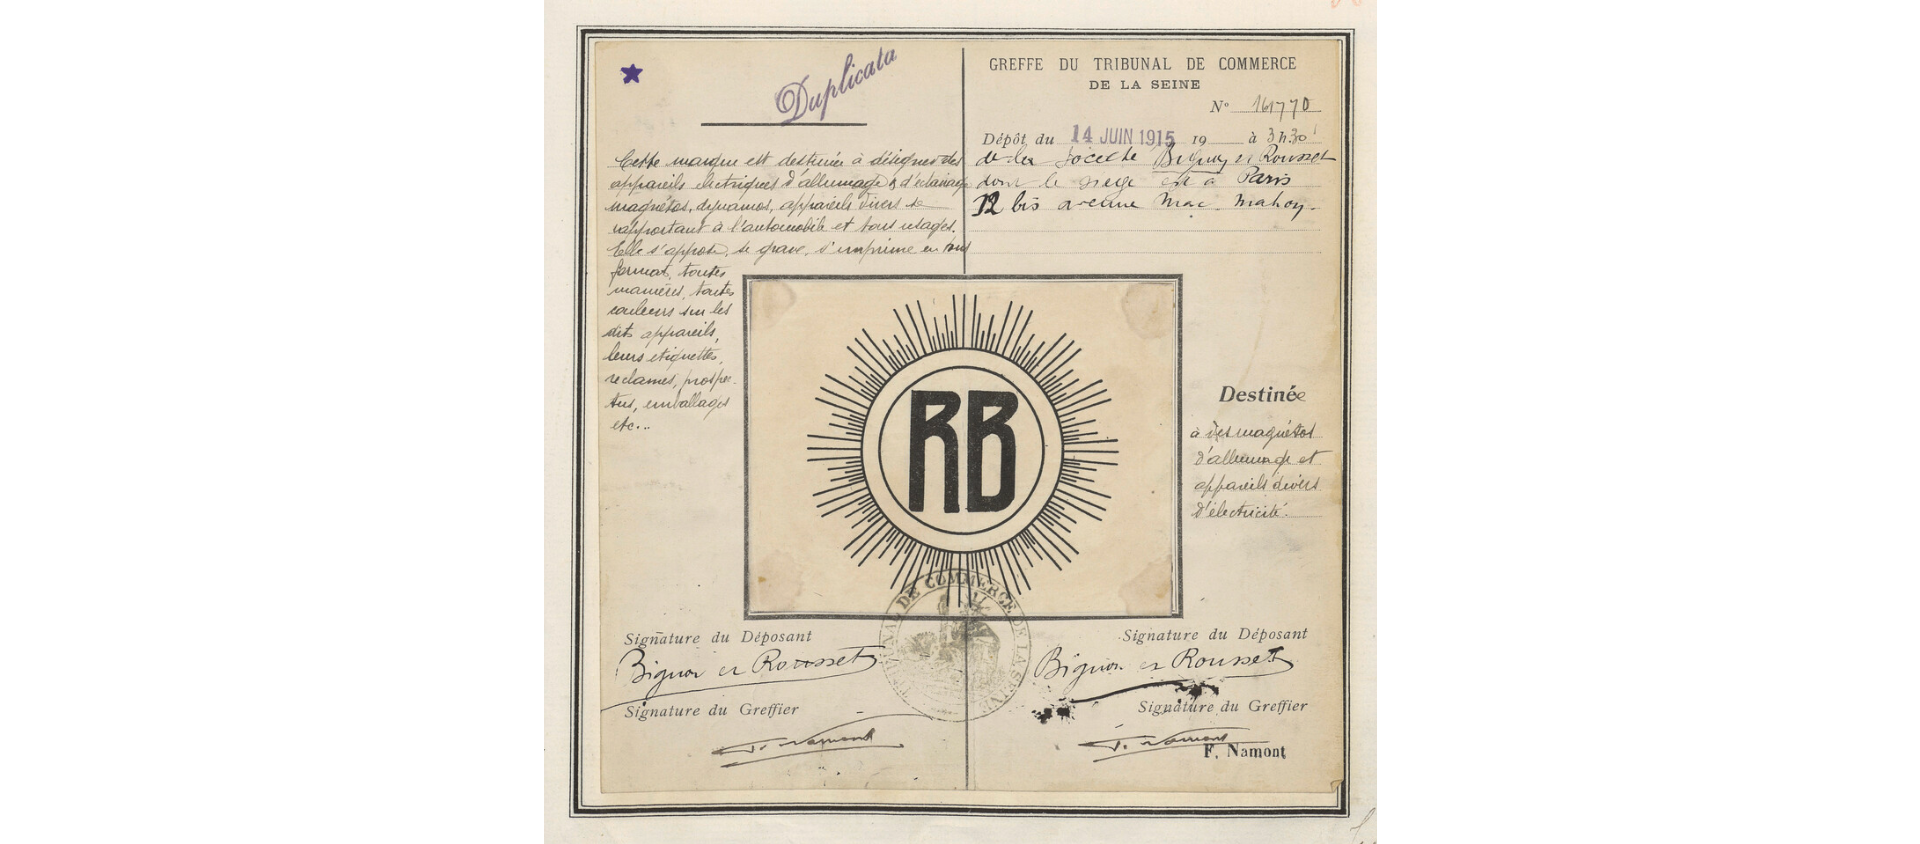 Duplicata
Cette marque est destinée à désigner des
appareils électriques d'allumage & d'éclairage
magnétos, dynamos, appareils divers se
rapportant à l'automobile et tous usages.
Elle s'appose, se grave, s'imprime en tous
format, toutes
manières, toutes
couleurs sur les
dits appareils,
leurs etiquettes,
reclames, prospec-
tus, emballages
etc...
GREFFE DU TRIBUNAL DE COMMERCE
DE LA SEINE
N° 161770
Dépôt du 14 JUIN 1915 19 à 3h30
de la Société Bignon et Rousset
dont le siege est à Paris
12 bis avenue Mac-Mahon.
RB
Destinée
à des magnétos
d'allumage et
appareils divers
d'électricité.
TRIBUNAL DE COMMERCE DE LA SEINE
Signature du Déposant
Bignon et Rousset
Signature du Greffier
F. Namont
Signature du Déposant
Bignon et Rousset
Signature du Greffier
F. Namont
F. Namont